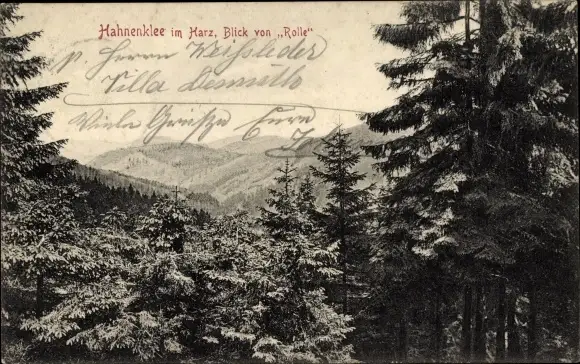 Hahnenklee im Harz, Blick von „Rolle"
p. Herrn Weißleder
Villa Demuth
Viele Grüße